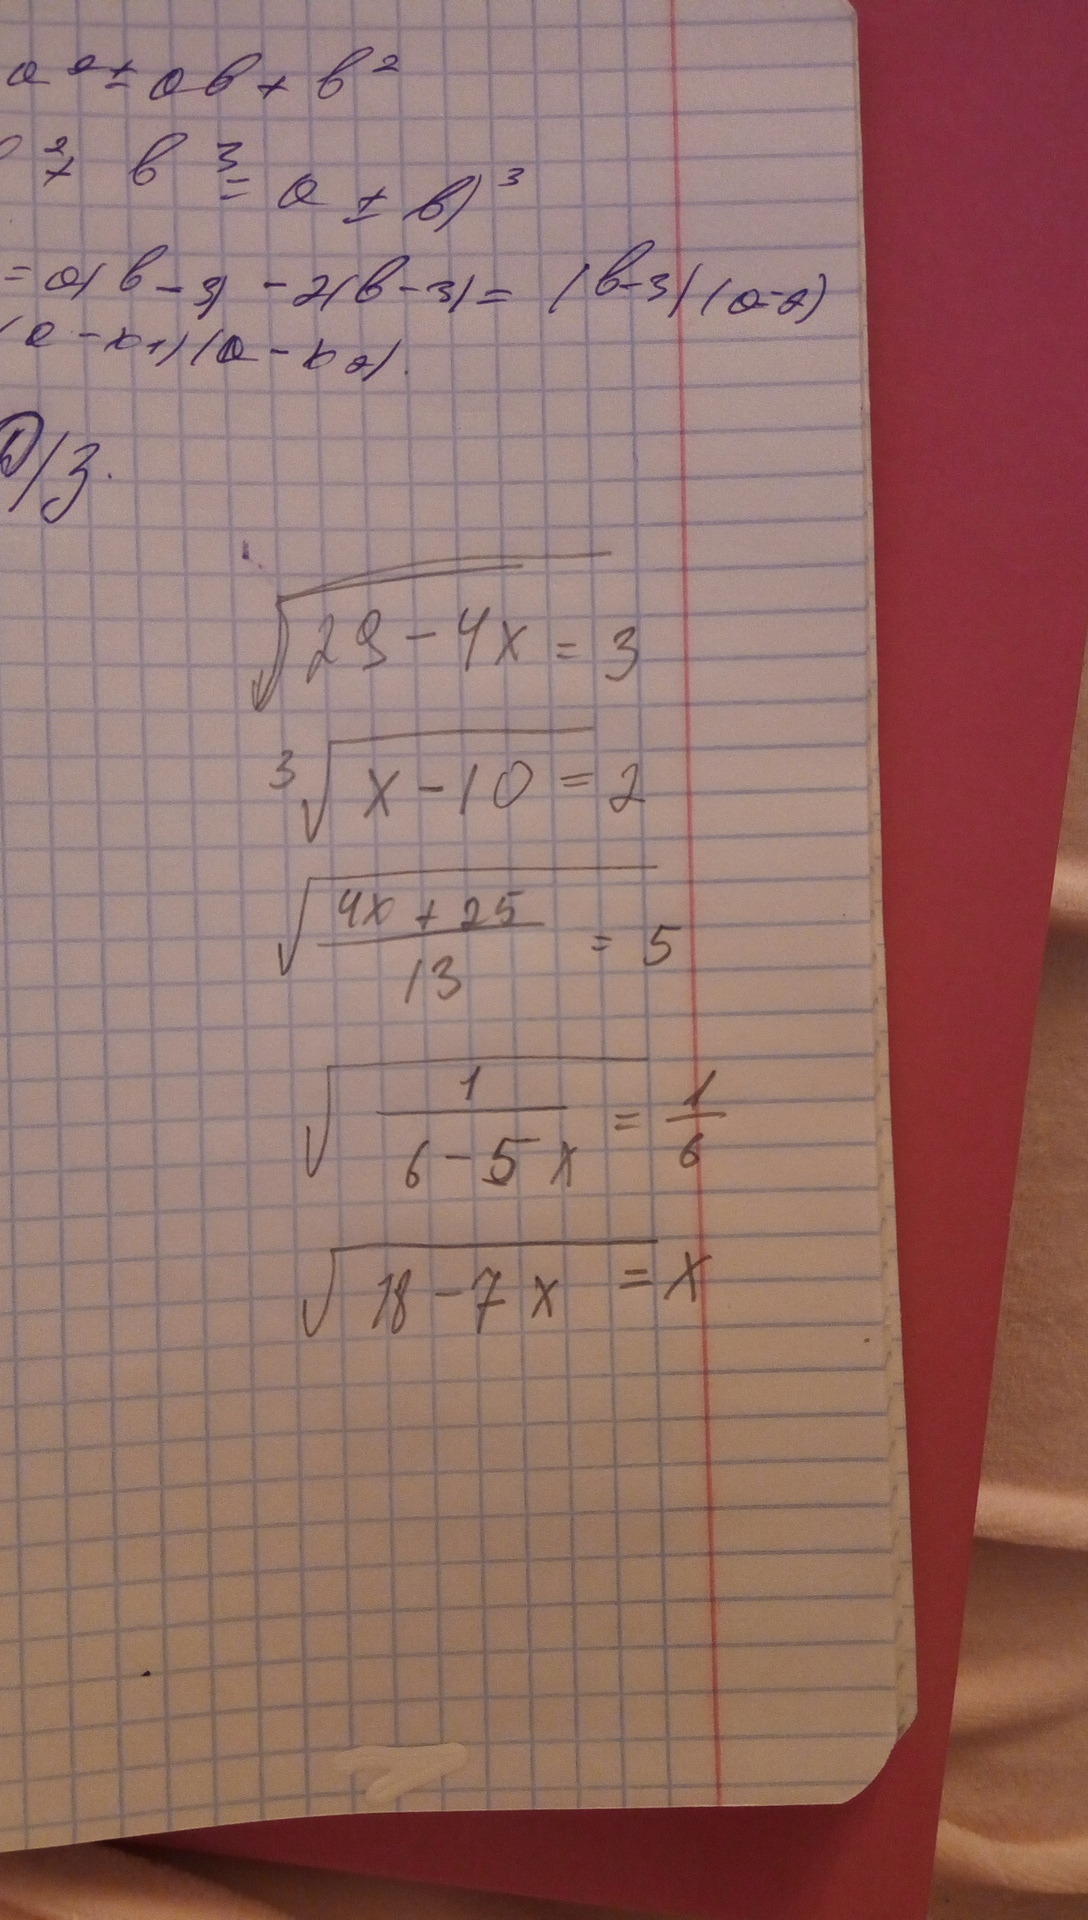 a² ± ab + b²
² ± b³ = a ± b)³
= a(b-3) - 2(b-3) = (b-3)(a-2)
(a - x₁)(a - x₂).
D/з.
√29-4x = 3
³√x-10 = 2
√4x+25/13 = 5
√1/6-5x = 1/6
√18-7x = x